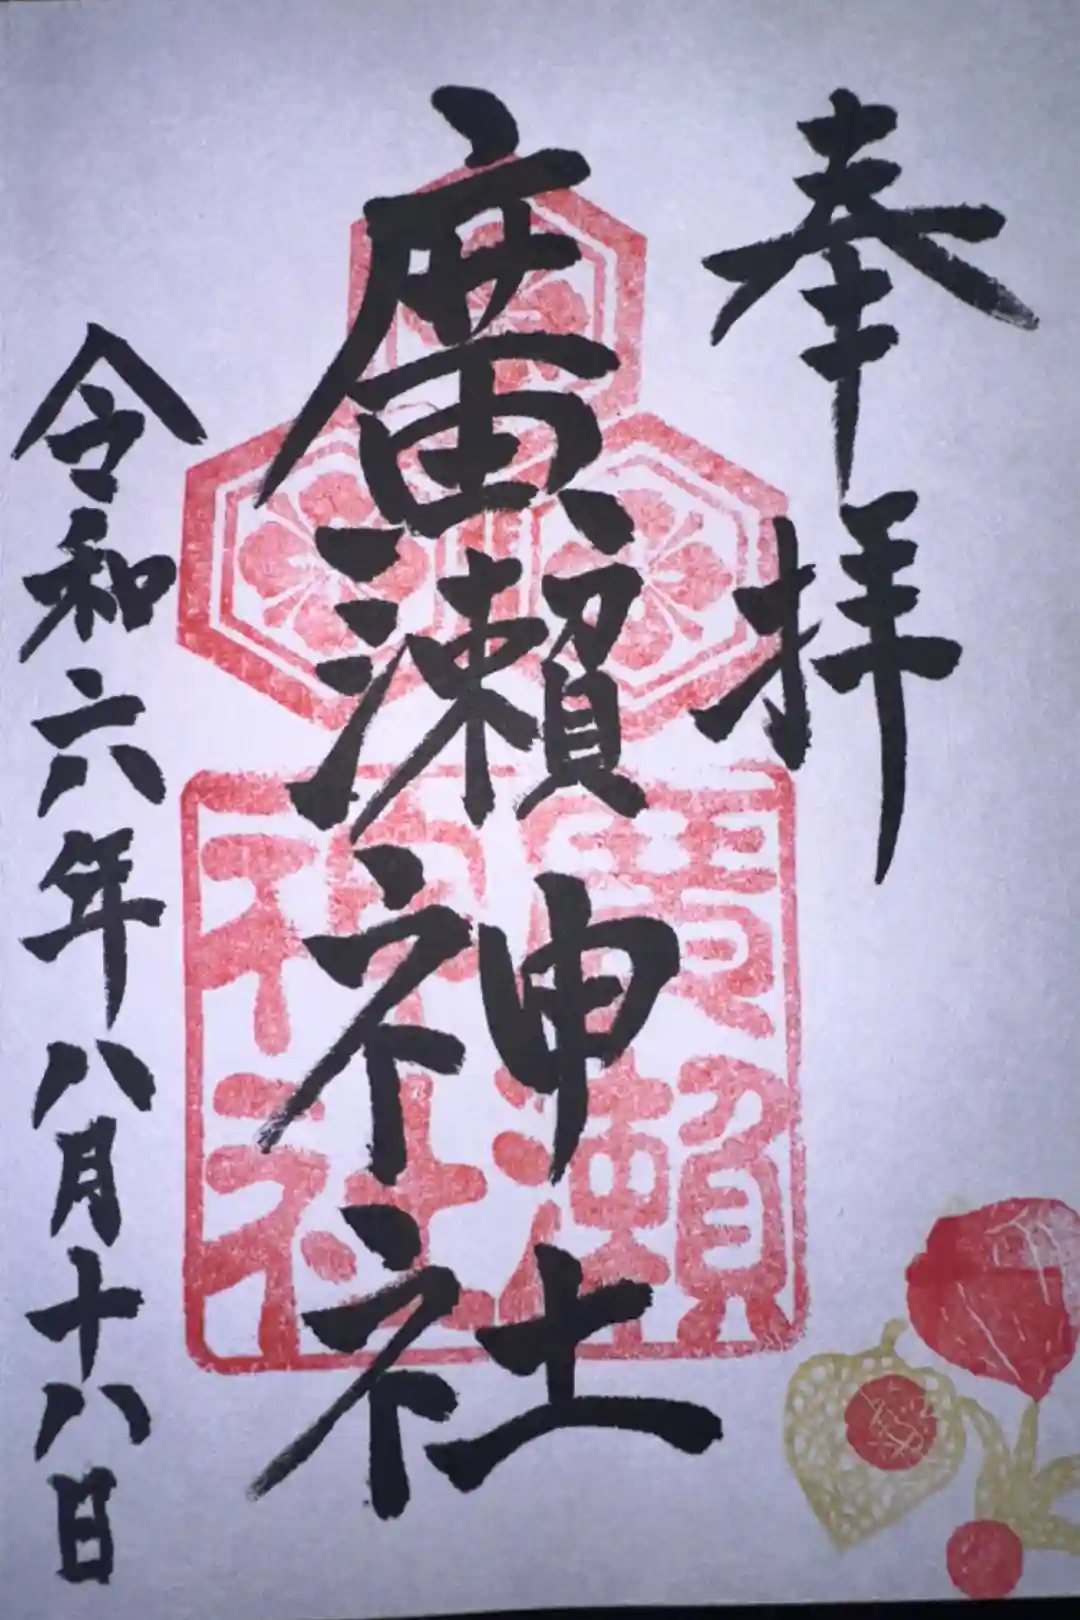 奉拝
廣瀬神社
廣瀬神社
令和六年八月十八日